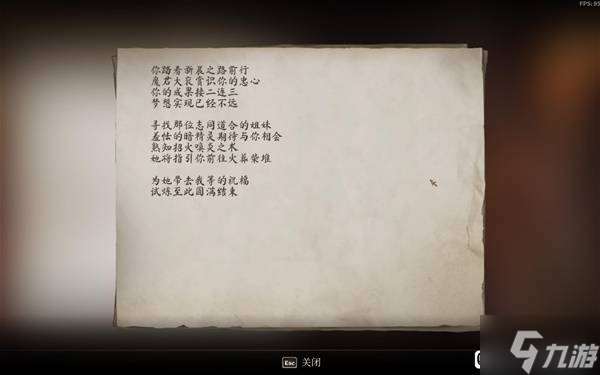 FPS:95
你踏着新晨之路前行
魔君大哀赏识你的忠心
你的成果接二连三
梦想实现已经不远
寻找那位志同道合的姐妹
羞怯的暗精灵期待与你相会
熟知招火唤炎之术
她将指引你前往火葬柴堆
为她带去我等的祝福
试炼至此圆满结束
Esc 关闭
九游